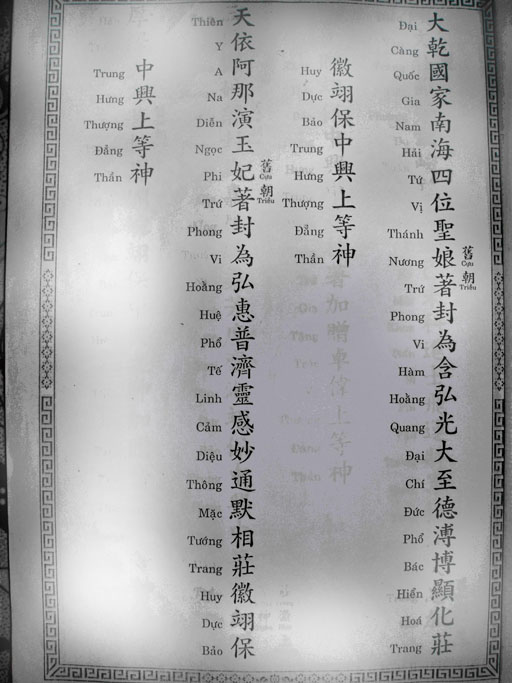 大乾國家南海四位聖娘著封為含弘光大至德溥博顯化莊
Đại Càng Quốc Gia Nam Hải Tứ Vị Thánh Nương Trứ Phong Vi Hàm Hoằng Quang Đại Chí Đức Phổ Bác Hiển Hoá Trang
舊朝
Cựu Triều
徽翊保中興上等神
Huy Dực Bảo Trung Hưng Thượng Đẳng Thần
天依阿那演玉妃著封為弘惠普濟靈感妙通默相莊徽翊保
Thiên Y A Na Diễn Ngọc Phi Trứ Phong Vi Hoằng Huệ Phổ Tế Linh Cảm Diệu Thông Mặc Tướng Trang Huy Dực Bảo
舊朝
Cựu Triều
中興上等神
Trung Hưng Thượng Đẳng Thần